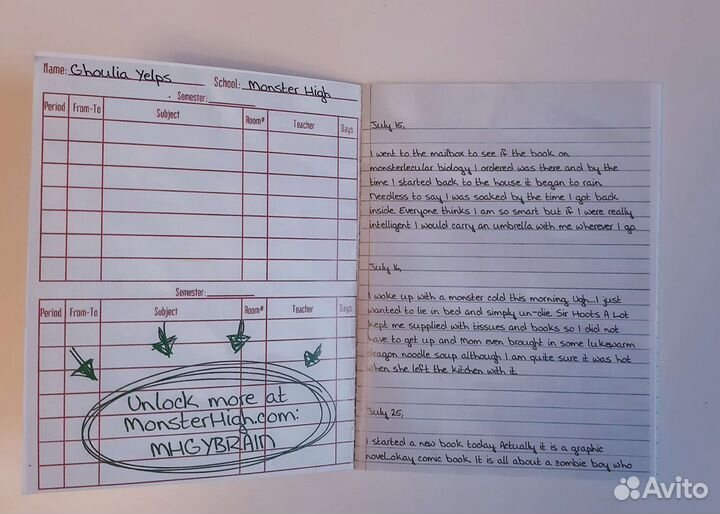 Name: Ghoulia Yelps School: Monster High
Semester:
Period From-To Subject Room# Teacher Days
Semester:
Period From-To Subject Room# Teacher Days
Unlock more at
MonsterHigh.com:
MHGYBRAIN
July 15,
I went to the mailbox to see if the book on
monsterlecular biology I ordered was there and by the
time I started back to the house it began to rain.
Needless to say I was soaked by the time I got back
inside. Everyone thinks I am so smart but if I were really
intelligent I would carry an umbrella with me wherever I go.
July 16,
I woke up with a monster cold this morning. Ugh...I just
wanted to lie in bed and simply un-die. Sir Hoots A Lot
kept me supplied with tissues and books so I did not
have to get up and mom even brought in some lukewarm
dragon noodle soup although I am quite sure it was hot
when she left the kitchen with it.
July 25,
I started a new book today. Actually it is a graphic
novel..okay comic book. It is all about a zombie boy who
Avito